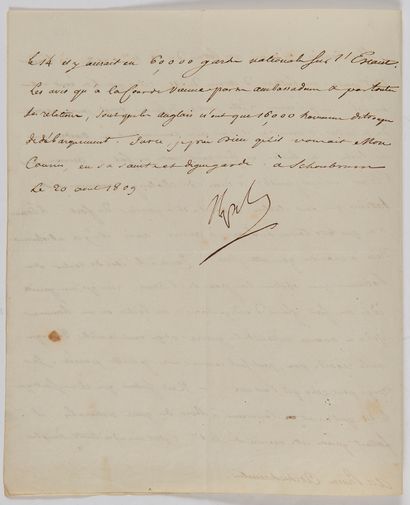 le 14 il y aurait eu 60,000 garde nationale sur l'Escaut.
Les avis qu'à la Cour de Vienne par son ambassadeur & par toute
ses relations, sont que les anglais n'ont que 16,000 hommes de troupe
de débarquement. Surce je prie Dieu qu'il vous ait Mon
Cousin, en sa sainte et digne garde à Schonbrunn
Le 20 août 1809
Nap